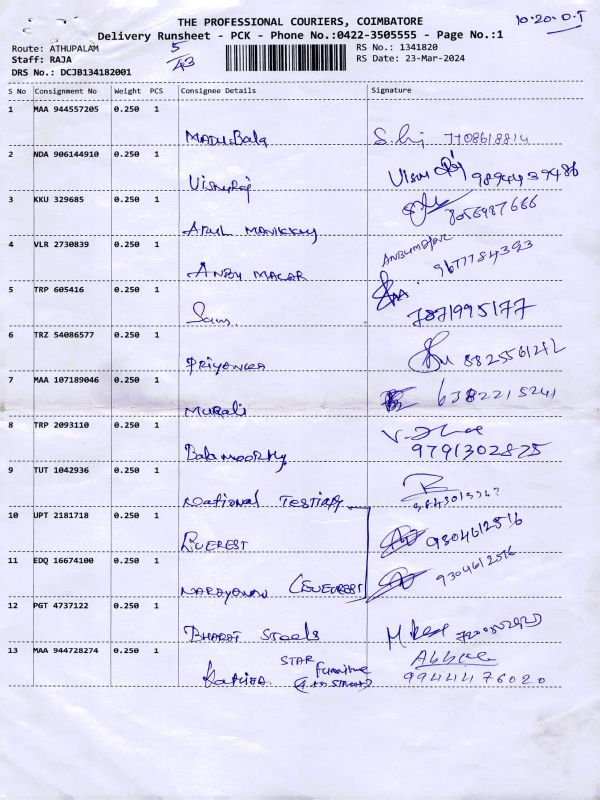 THE PROFESSIONAL COURIERS, COIMBATORE
10.20.D.T
Delivery Runsheet - PCK - Phone No.:0422-3505555 - Page No.:1
Route: ATHUPALAM
5/43
RS No.: 1341820
Staff: RAJA
RS Date: 23-Mar-2024
DRS No.: DCJB134182001
S No Consignment No Weight PCS Consignee Details Signature
1 MAA 944557205 0.250 1
MADHuBala 7708618814
2 NDA 906144910 0.250 1
VISHNURAJ 9894439486
3 KKU 329685 0.250 1
ARUL MANIKKAM 8056987666
4 VLR 2730839 0.250 1
ANBU MALAR 9677784393
5 TRP 605416 0.250 1
7871995177
6 TRZ 54086577 0.250 1
PRIYANKA 8825561212
7 MAA 107189046 0.250 1
MURALI 6382215241
8 TRP 2093110 0.250 1
Balamoorthy
9791302825
9 TUT 1042936 0.250 1
National TESTING
10 UPT 2181718 0.250 1
EUEREST 9304612516
11 EDQ 16674100 0.250 1
NARAYANAN (EUEUREST) 9304612516
12 PGT 4737122 0.250 1
BHARAT Steels
13 MAA 944728274 0.250 1
STAR Furniture
9944476020